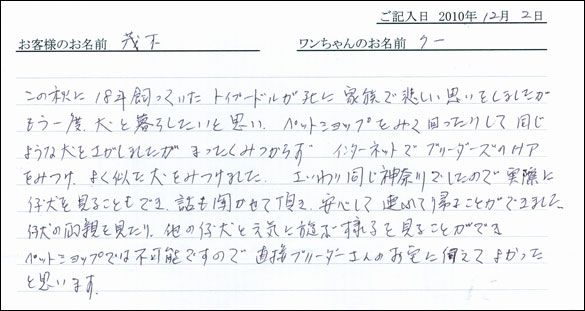 ご記入日 2010年12月2日
お客様のお名前 茂木 ワンちゃんのお名前 クー
この秋に18年飼っていたトイプードルが死に家族で悲しい思いをしましたが
もう一度、犬と暮らしたいと思い、ペットショップをみて回ったりして同じ
ような犬をさがしましたがまったくみつからず インターネットでブリーダーズのHPア
をみつけ、よく似た犬をみつけました。さいわい同じ神奈川でしたので実際に
仔犬を見ることもでき、話も聞かせて頂き、安心して連れて帰ることができました
仔犬の両親を見たり、他の仔犬と元気に遊ぶ様子を見ることができ
ペットショップでは不可能ですので直接ブリーダーさんのお宅に伺えてよかった
と思います。